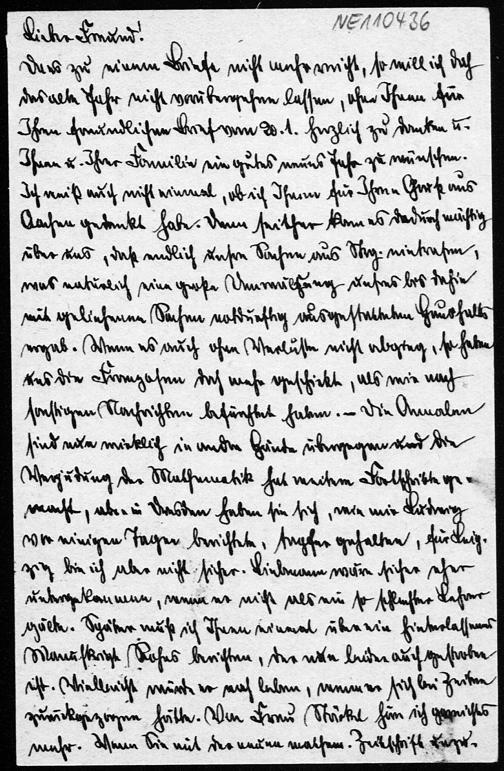 NE110436
Lieber Freund!
Dass zu einem Briefe nicht mehr reicht, so will ich doch
das alte Jahr nicht vorübergehen lassen, ohne Ihnen für
Ihren freundlichen Brief vom 20.1. herzlich zu danken u.
Ihnen u. Ihrer Familie ein gutes neues Jahr zu wünschen.
Ich weiß auch nicht einmal, ob ich Ihnen für Ihren Gruß aus
Aachen gedankt habe. Denn seither kam es dadurch mächtig
über uns, daß endlich unsre Sachen aus Stbg. eintrafen,
was natürlich eine große Umwälzung unsres bis dahin
mit geliehenen Sachen notdürftig ausgestatteten Haushalts
ergab. Wenn es auch ohne Verluste nicht abging, so haben
uns die Franzosen doch mehr geschickt, als wir nach
sonstigen Nachrichten befürchtet haben. – Die Annalen
sind nun wirklich in andre Hände übergegangen und die
Verjudung der Mathematik hat weitere Fortschritte ge-
macht, aber in Dresden haben sie sich, wie mir Ludwig
vor einigen Tagen berichtete, tapfer gehalten, für Leip-
zig bin ich aber nicht sicher. Liebmann wäre sicher eher
untergekommen, wenn er nicht als ein so schlechter Lehrer
gälte. Später muß ich Ihnen einmal über ein hinterlassenes
Manuskript Rohns berichten, der nun leider auch gestorben
ist. Vielleicht würde er noch leben, wenn er sich bei Zeiten
zurückgezogen hätte. Von Frau Stäckel hör ich garnichts
mehr. Wenn Sie mit der neuen mathem. Zeitschrift